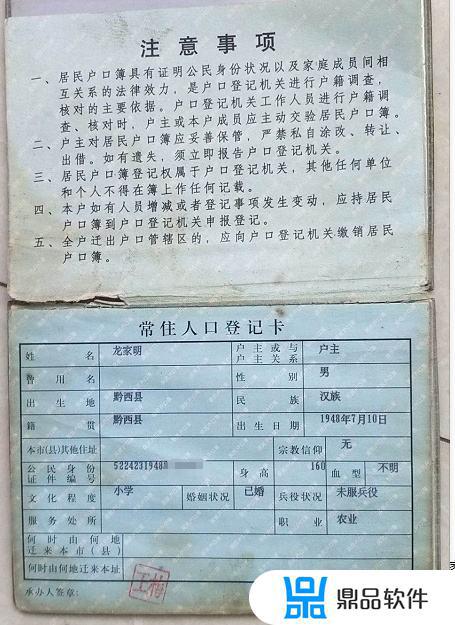 注意事项
一、居民户口簿具有证明公民身份状况以及家庭成员间相
互关系的法律效力，是户口登记机关进行户籍调查，
核对的主要依据。户口登记机关工作人员进行户籍调
查、核对时，户主或本户成员应主动交验居民户口簿。
二、户主对居民户口簿应妥善保管，严禁私自涂改、转让、
出借。如有遗失，须立即报告户口登记机关。
三、居民户口簿登记权属于户口登记机关，其他任何单位
和个人不得在簿上作任何记载。
四、本户如有人员增减或者登记事项发生变动，应持居民
户口簿到户口登记机关申报登记。
五、全户迁出户口管辖区的，应向户口登记机关缴销居民
户口簿。
常住人口登记卡
姓名 龙家明 户主或与户主关系 户主
曾用名 性别 男
出生地 黔西县 民族 汉族
籍贯 黔西县 出生日期 1948年7月10日
本市(县)其他住址 宗教信仰 无
公民身份证件编号 5224231948 身高 160 血型 不明
文化程度 小学 婚姻状况 已婚 兵役状况 未服兵役
服务处所 职业 农业
何时由何地迁来本市(县)
何时由何地迁来本址
承办人签章：
鼎品软件